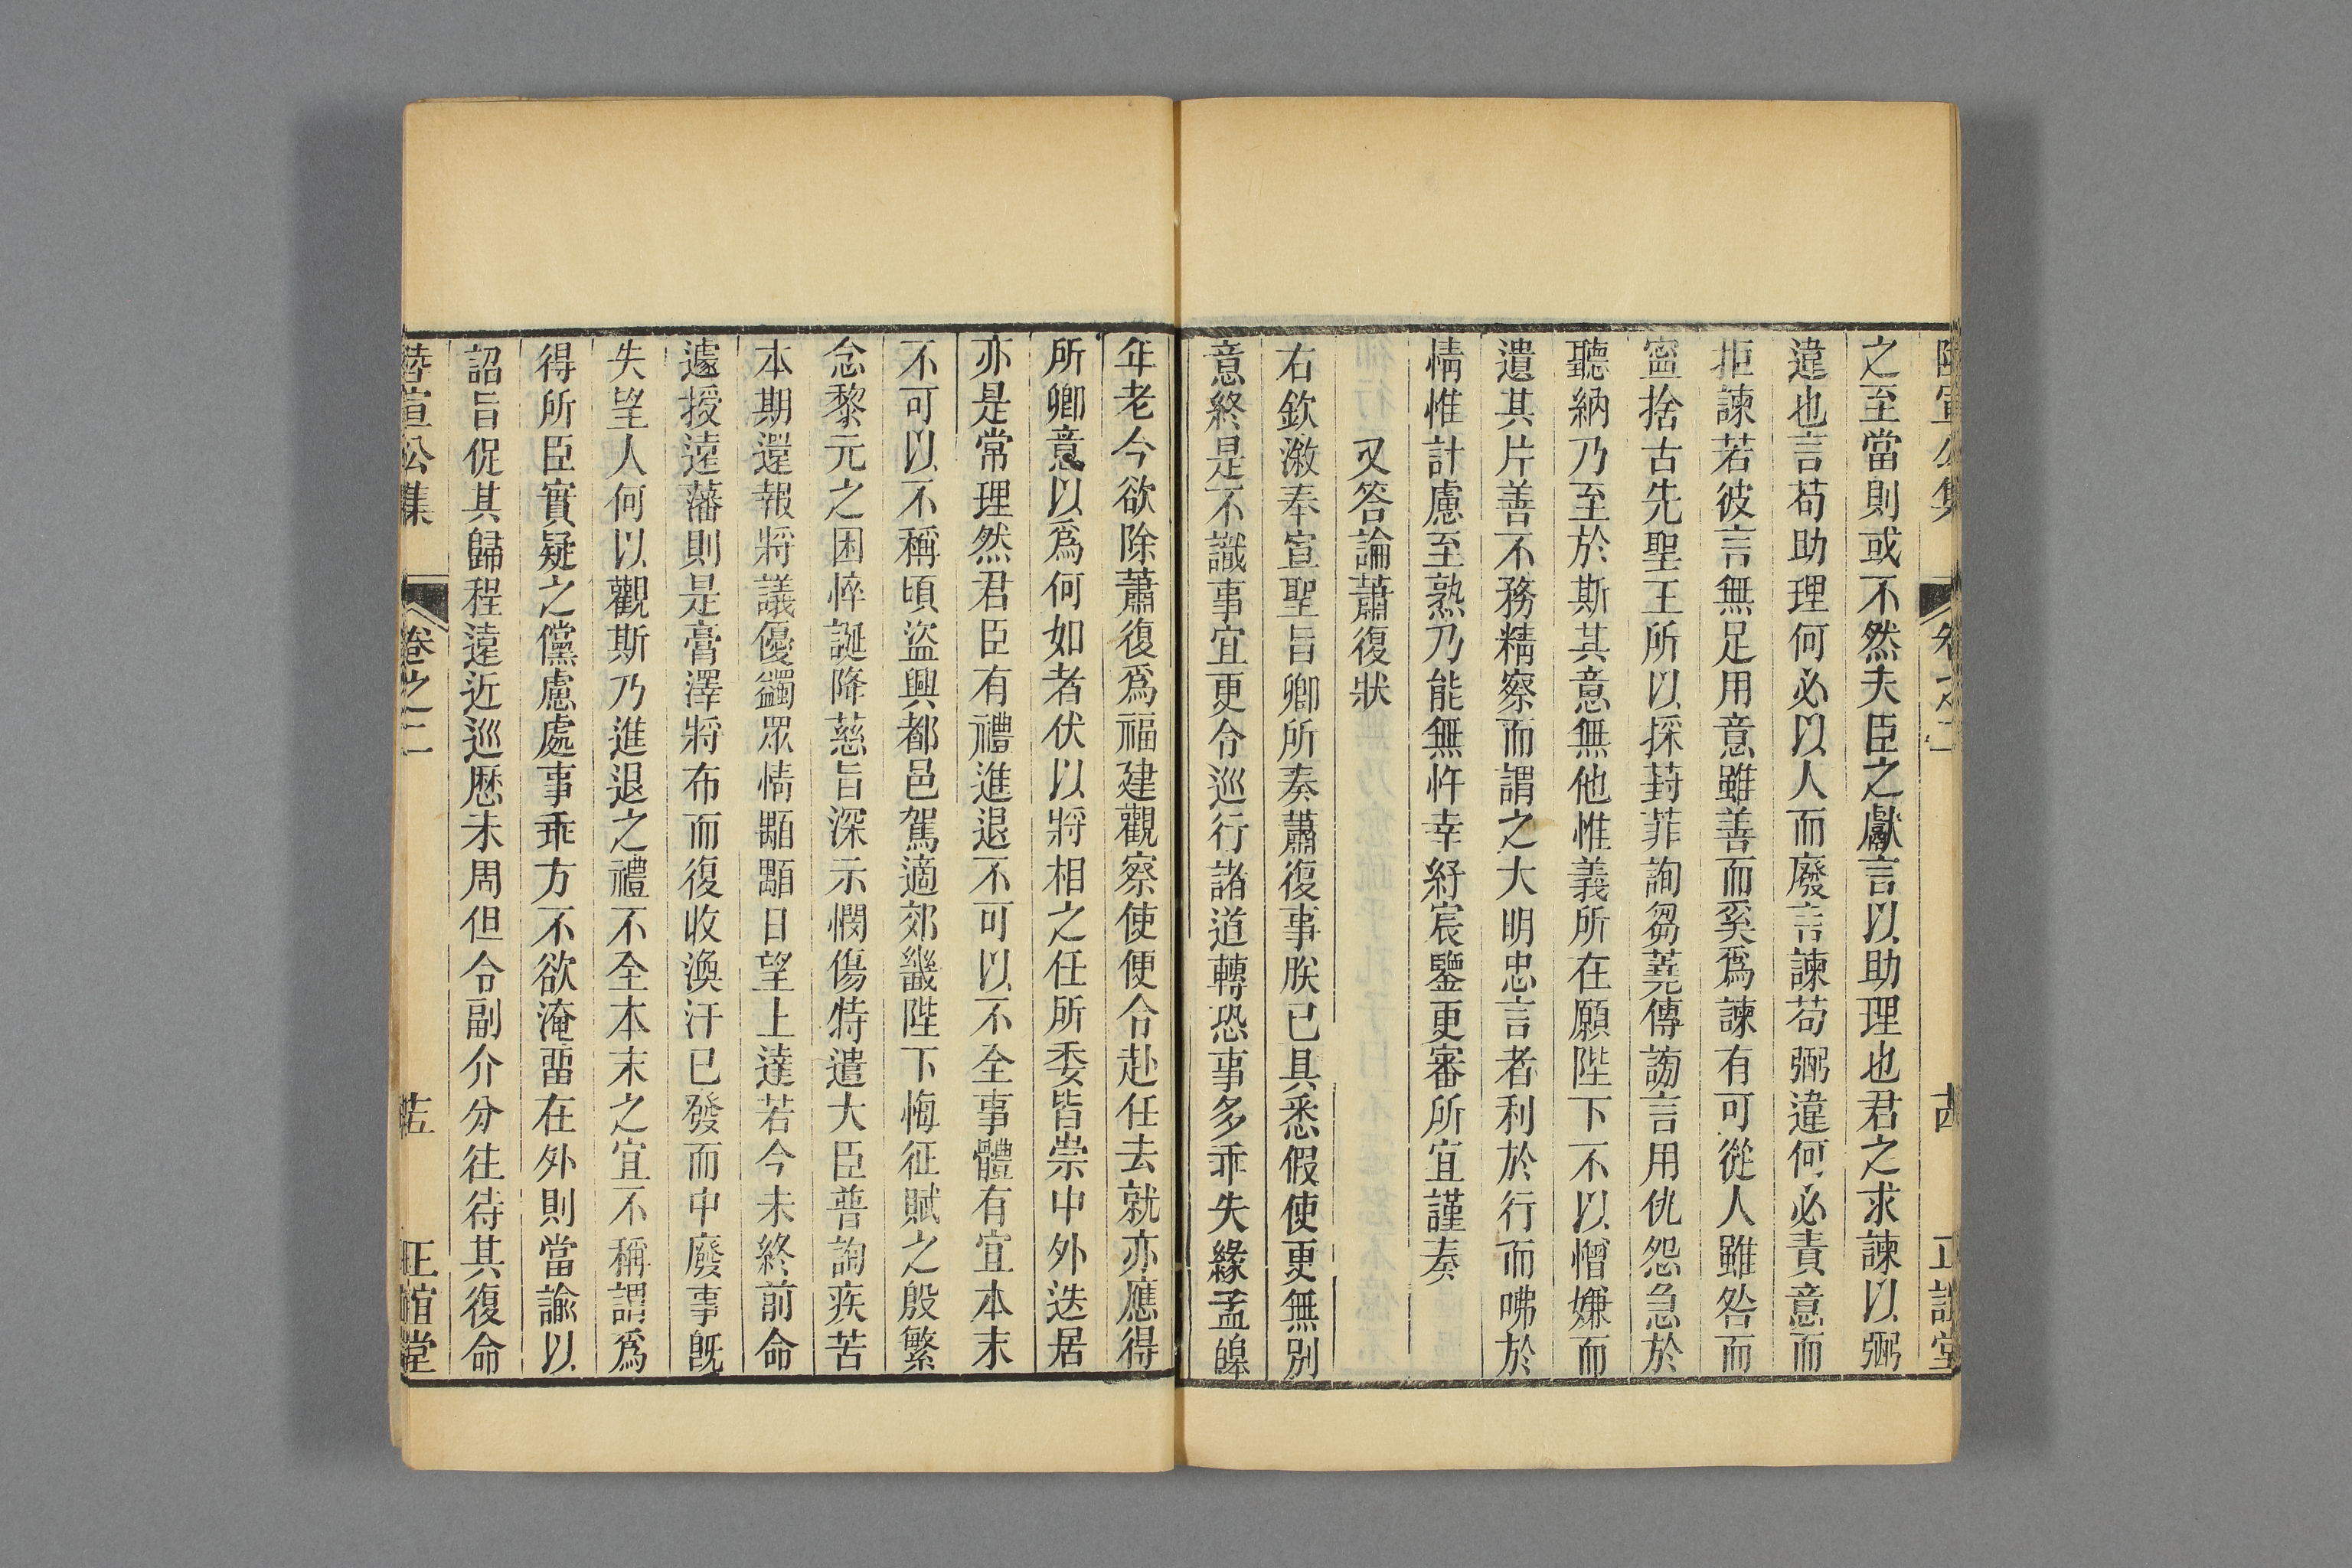 陸宣公集 卷之二 十四 正誼堂
之至當則或不然夫臣之獻言以助理也君之求諫以弼
違也言苟助理何必以人而廢言諫苟弼違何必責意而
拒諫若彼言無足用意雖善而奚爲諫有可從人雖咎而
寧捨古先聖王所以採葑菲詢芻蕘傳謗言用仇怨急於
聽納乃至於斯其意無他惟義所在願陛下不以憎嫌而
遺其片善不務精察而謂之大明忠言者利於行而咈於
情惟計慮至熟乃能無忤幸紆宸鑒更審所宜謹奏
又答論蕭復狀
右欽漵奉宣聖旨卿所奏蕭復事朕已具悉假使更無別
意終是不識事宜更令巡行諸道轉恐事多乖失緣孟皞
年老今欲除蕭復爲福建觀察使便令赴任去就亦應得
所卿意以爲何如者伏以將相之任所委皆崇中外迭居
亦是常理然君臣有禮進退不可以不全事體有宜本末
不可以不稱頃盜興都邑駕適郊畿陛下悔征賦之殷繁
念黎元之困悴誕降慈旨深示憫傷特遣大臣普詢疾苦
本期還報將議優蠲眾情顒顒日望上達若今未終前命
遽授遠藩則是膏澤將布而復收渙汗已發而中廢事旣
失望人何以觀斯乃進退之禮不全本末之宜不稱謂爲
得所臣實疑之儻慮處事乖方不欲淹畱在外則當諭以
詔旨促其歸程遠近巡歷未周但令副介分往待其復命
陸宣公集 卷之二 十五 正誼堂